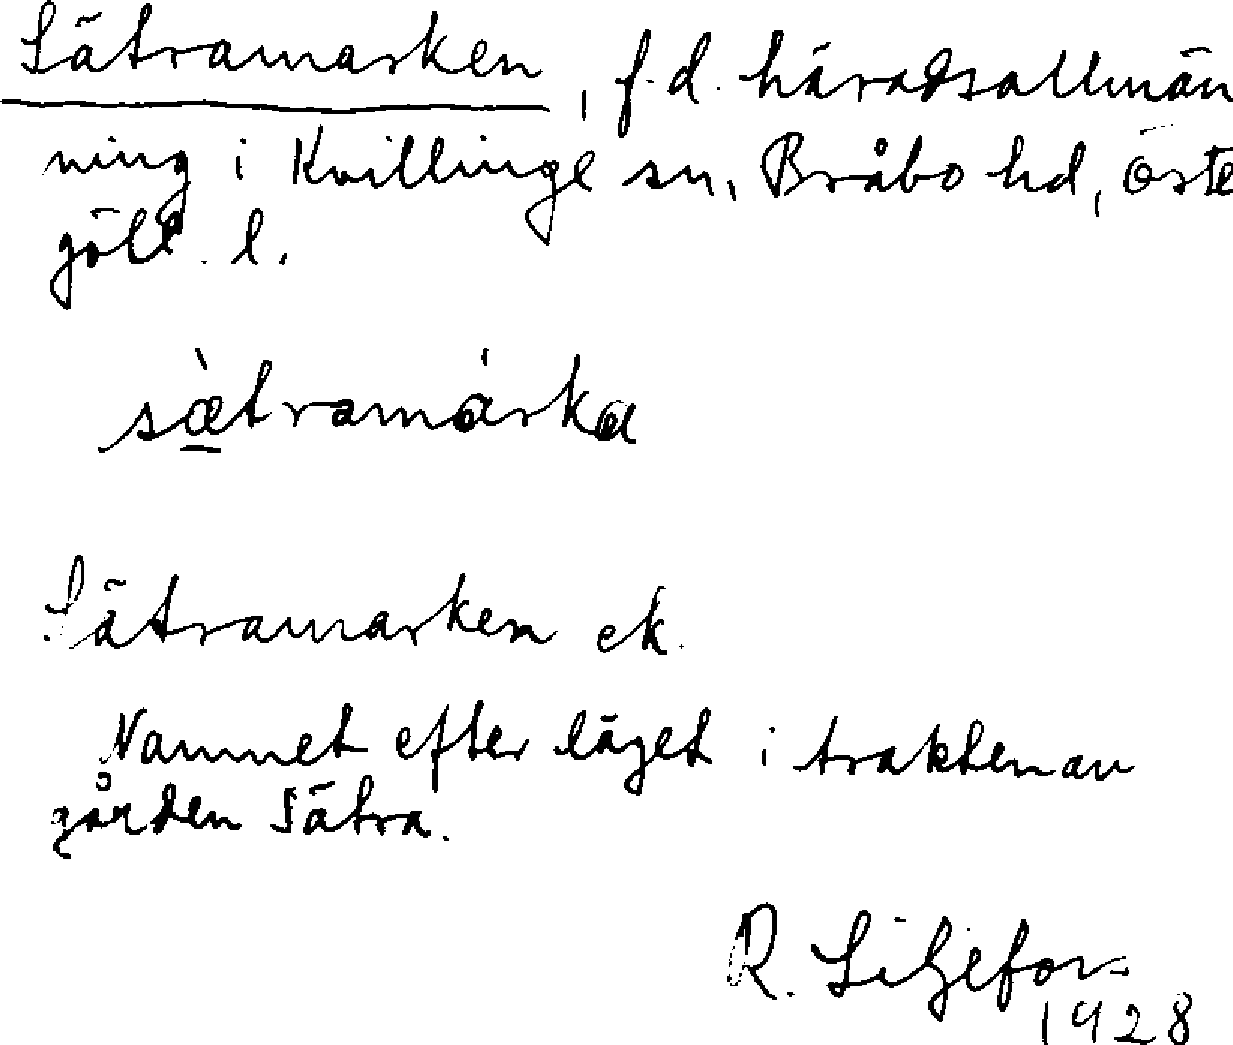 Sätramarken, f.d. häradsallmän
ning i Kvillinge sn, Bråbo hd, Öste
götl. l.
sæ̀tramárka
Sätramarken ek.
Namnet efter läget i trakten av
gården Sätra.
R. Liljefors
1928